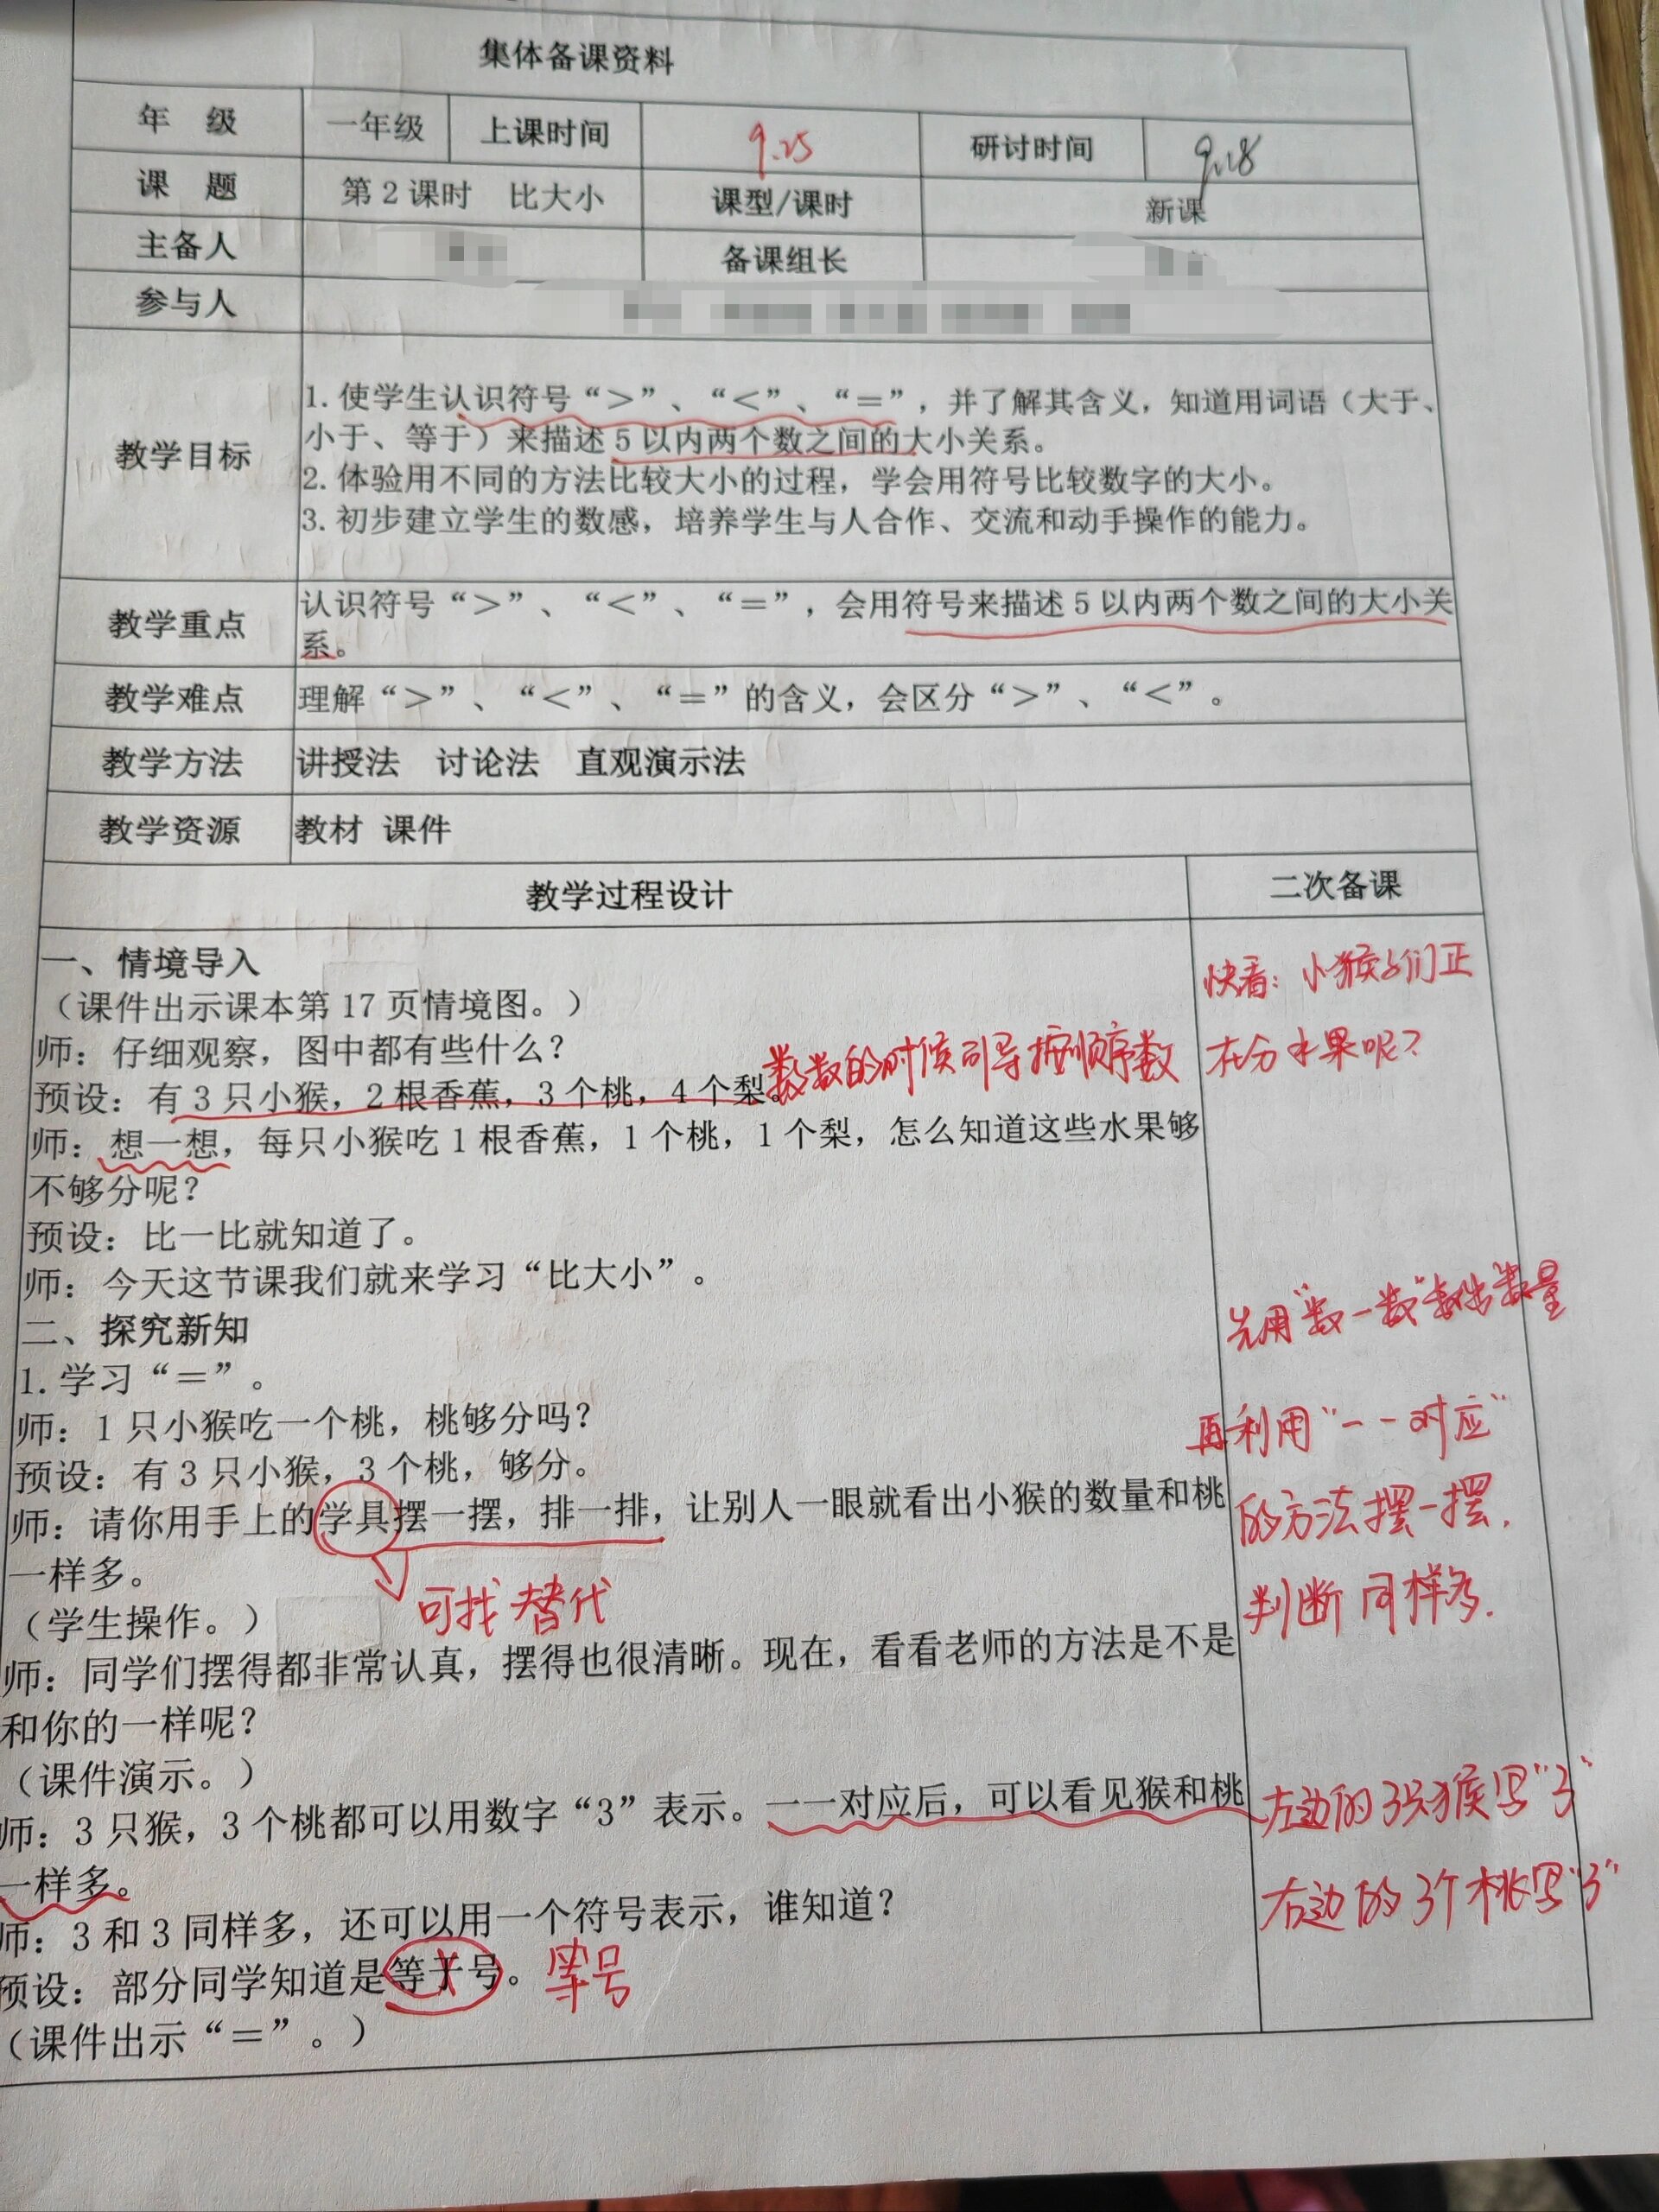 集体备课资料
年 级 一年级 上课时间 9.25 研讨时间 9.18
课 题 第2课时 比大小 课型/课时 新课
主备人 备课组长
参与人
教学目标
1. 使学生认识符号“>”、“<”、“=”，并了解其含义，知道用词语（大于、
小于、等于）来描述5以内两个数之间的大小关系。
2. 体验用不同的方法比较大小的过程，学会用符号比较数字的大小。
3. 初步建立学生的数感，培养学生与人合作、交流和动手操作的能力。
教学重点
认识符号“>”、“<”、“=”，会用符号来描述5以内两个数之间的大小关
系。
教学难点 理解“>”、“<”、“=”的含义，会区分“>”、“<”。
教学方法 讲授法 讨论法 直观演示法
教学资源 教材 课件
教学过程设计 二次备课
一、情境导入
快看：小猴子们正
（课件出示课本第17页情境图。）
师：仔细观察，图中都有些什么？
在分水果呢？
数数的时候引导按顺序数
预设：有3只小猴，2根香蕉，3个桃，4个梨。
师：想一想，每只小猴吃1根香蕉，1个桃，1个梨，怎么知道这些水果够
不够分呢？
预设：比一比就知道了。
师：今天这节课我们就来学习“比大小”。
先用“数一数”数出数量
二、探究新知
1. 学习“=”。
师：1只小猴吃一个桃，桃够分吗？
再利用“一一对应”
预设：有3只小猴，3个桃，够分。
师：请你用手上的学具摆一摆，排一排，让别人一眼就看出小猴的数量和桃
的方法摆一摆.
一样多。
可找替代
判断同样多.
（学生操作。）
师：同学们摆得都非常认真，摆得也很清晰。现在，看看老师的方法是不是
和你的一样呢？
（课件演示。）
师：3只猴，3个桃都可以用数字“3”表示。一一对应后，可以看见猴和桃
左边的3只猴写“3”
一样多。
右边的3个桃写“3”
师：3和3同样多，还可以用一个符号表示，谁知道？
预设：部分同学知道是等于号。 等号
（课件出示“=”。）